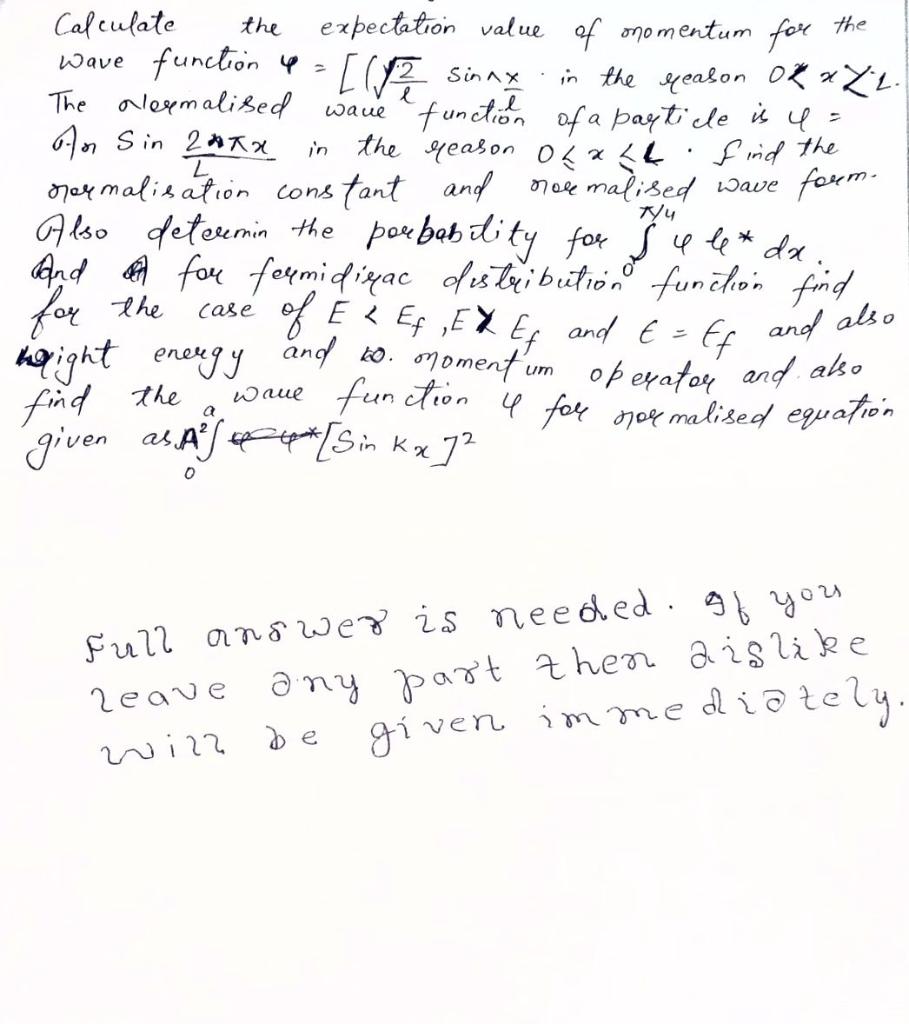 Calculate the expectation value of momentum for the
wave function ψ = [(√2/l sin πx/l in the reason 0< x <L.
The Normalised wave function of a particle is ψ =
An Sin 2nπx/L in the reason 0 < x < L. find the
normalisation constant and normalised wave form.
Also determin the porbability for ∫₀^π/4 ψ ψ* dx.
And for fermidirac distribution function find
for the case of E < Ef, E > Ef and E = Ef and also
height energy and momentum operator and also
find the wave function ψ for normalised equation
given as A² ∫₀^a [Sin kx]²
Full answer is needed. If you
leave any part then dislike
will be given immediately.